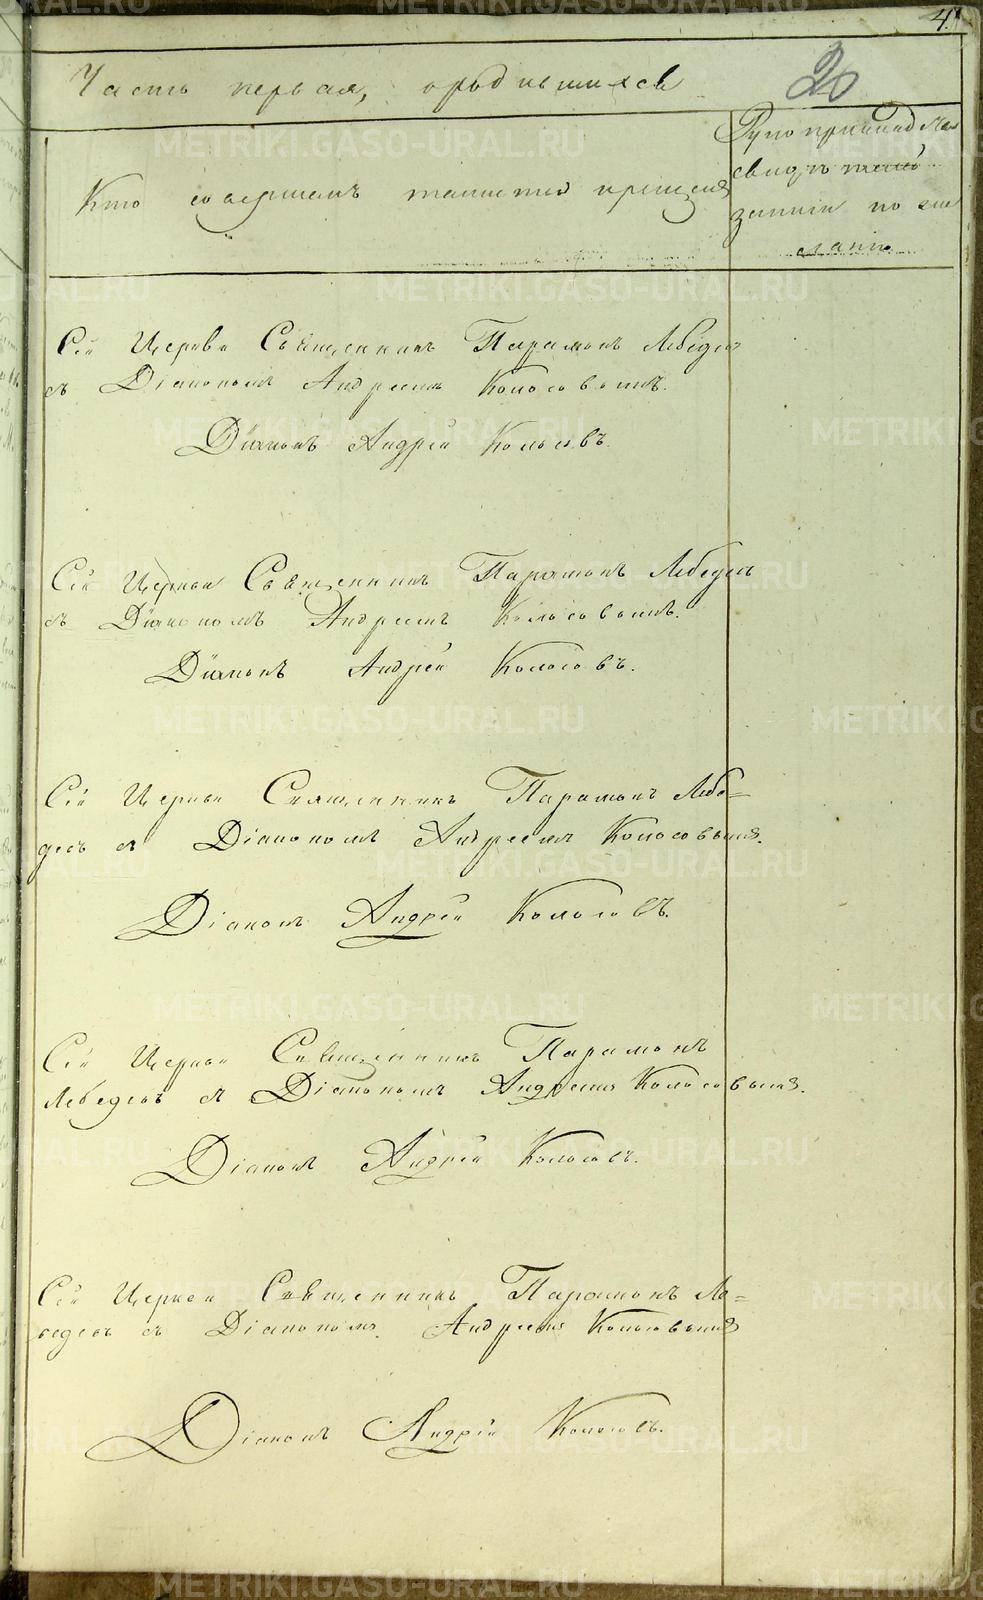 4.
Часть первая, о родившихся
20
Кто совершалъ таинство крещенія
Рукоприкладство
свидѣтелей
записи по же
ланію
Сей Церкви Священникъ Парамонъ Лебедевъ
съ Діакономъ Андреемъ Колосовымъ.
Діаконъ Андрей Колосовъ.
Сей Церкви Священникъ Парамонъ Лебедевъ
съ Діакономъ Андреемъ Колосовымъ.
Діаконъ Андрей Колосовъ.
Сей Церкви Священникъ Парамонъ Лебе=
девъ съ Діакономъ Андреемъ Колосовымъ.
Діаконъ Андрей Колосовъ.
Сей Церкви Священникъ Парамонъ
Лебедевъ съ Діакономъ Андреемъ Колосовымъ.
Діаконъ Андрей Колосовъ.
Сей Церкви Священникъ Парамонъ Ле=
бедевъ съ Діакономъ Андреемъ Колосовымъ
Діаконъ Андрей Колосовъ.
METRIKI.GASO-URAL.RU